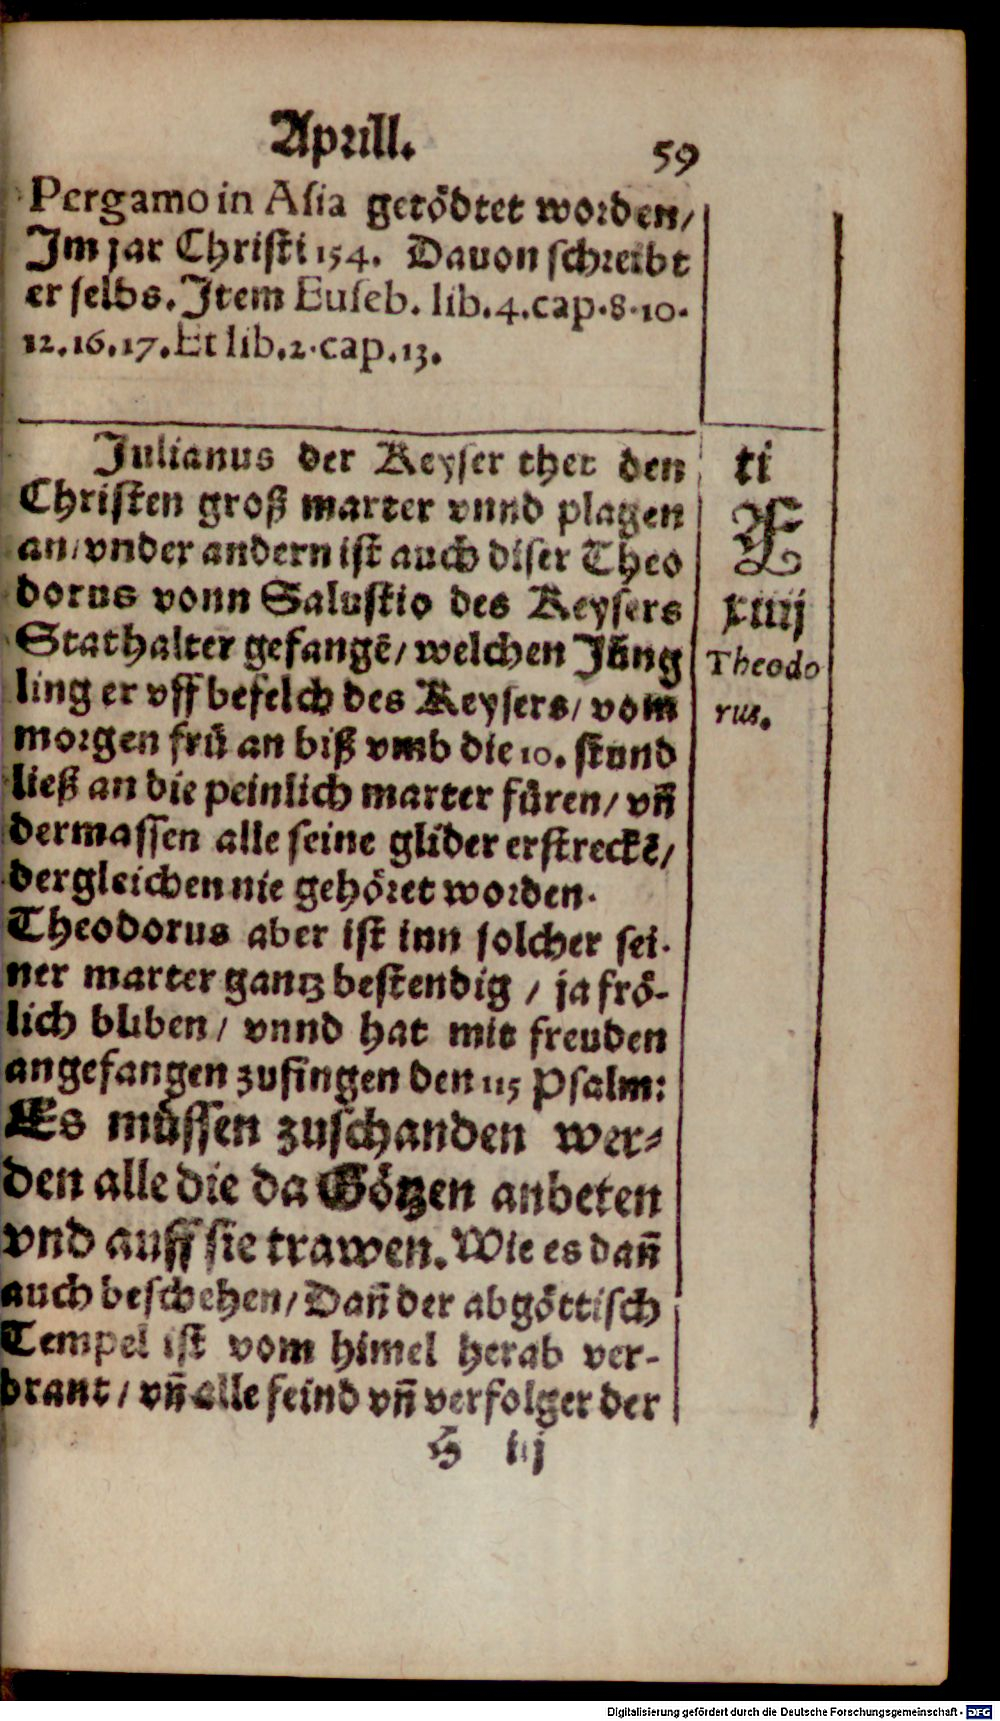 Aprill.
59
Pergamo in Asia getödtet worden/
Im jar Christi 154. Dauon schreibt
er selbs. Item Euseb. lib.4.cap.8.10.
12.16.17. Et lib.2.cap.13.
Julianus der Keyser thet den
Christen groß marter vnnd plagen
an/vnder andern ist auch diser Theo
dorus vonn Salustio des Keysers
Stathalter gefangē/welchen Jüng
ling er vff befelch des Keysers/vom
morgen frü an biß vmb die 10. stund
ließ an die peinlich marter füren/vñ
dermassen alle seine glider erstreckē/
dergleichen nie gehöret worden.
Theodorus aber ist inn solcher sei-
ner marter gantz bestendig / ja frö-
lich bliben/ vnnd hat mit freuden
angefangen zusingen den 115 Psalm:
Es müssen zuschanden wer-
den alle die da Götzen anbeten
vnd auff sie trawen. Wie es dañ
auch beschehen/Dañ der abgöttisch
Tempel ist vom himel herab ver-
brant/vñ alle feind vñ verfolger der
H iij
ti
F
xiiij
Theodo
rus.
Digitalisierung gefördert durch die Deutsche Forschungsgemeinschaft - DFG